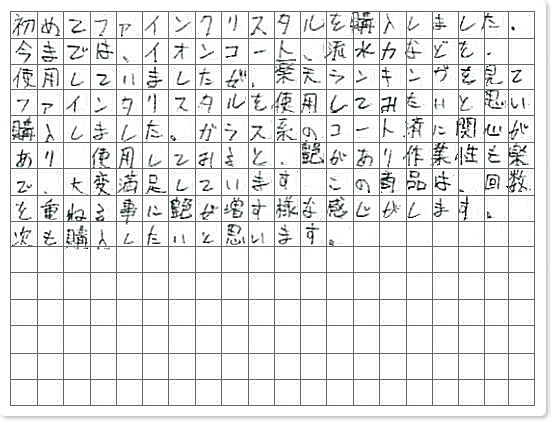 初めてファインクリスタルを購入しました。
今までは、イオンコート、流水力などを、
使用していましたが、楽天ランキングを見て
ファインクリスタルを使用してみたいと思い
購入しました。ガラス系のコート済に関心が
あり 使用しておると、艶があり作業性も楽
で、大変満足しています この商品は、回数
を重ねる事に艶が増す様な感じがします。
次も購入したいと思います。